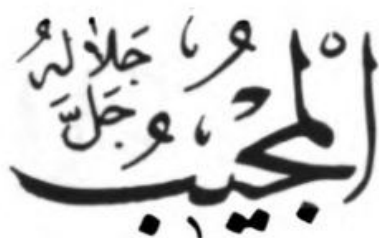 المجيب
جل جلاله